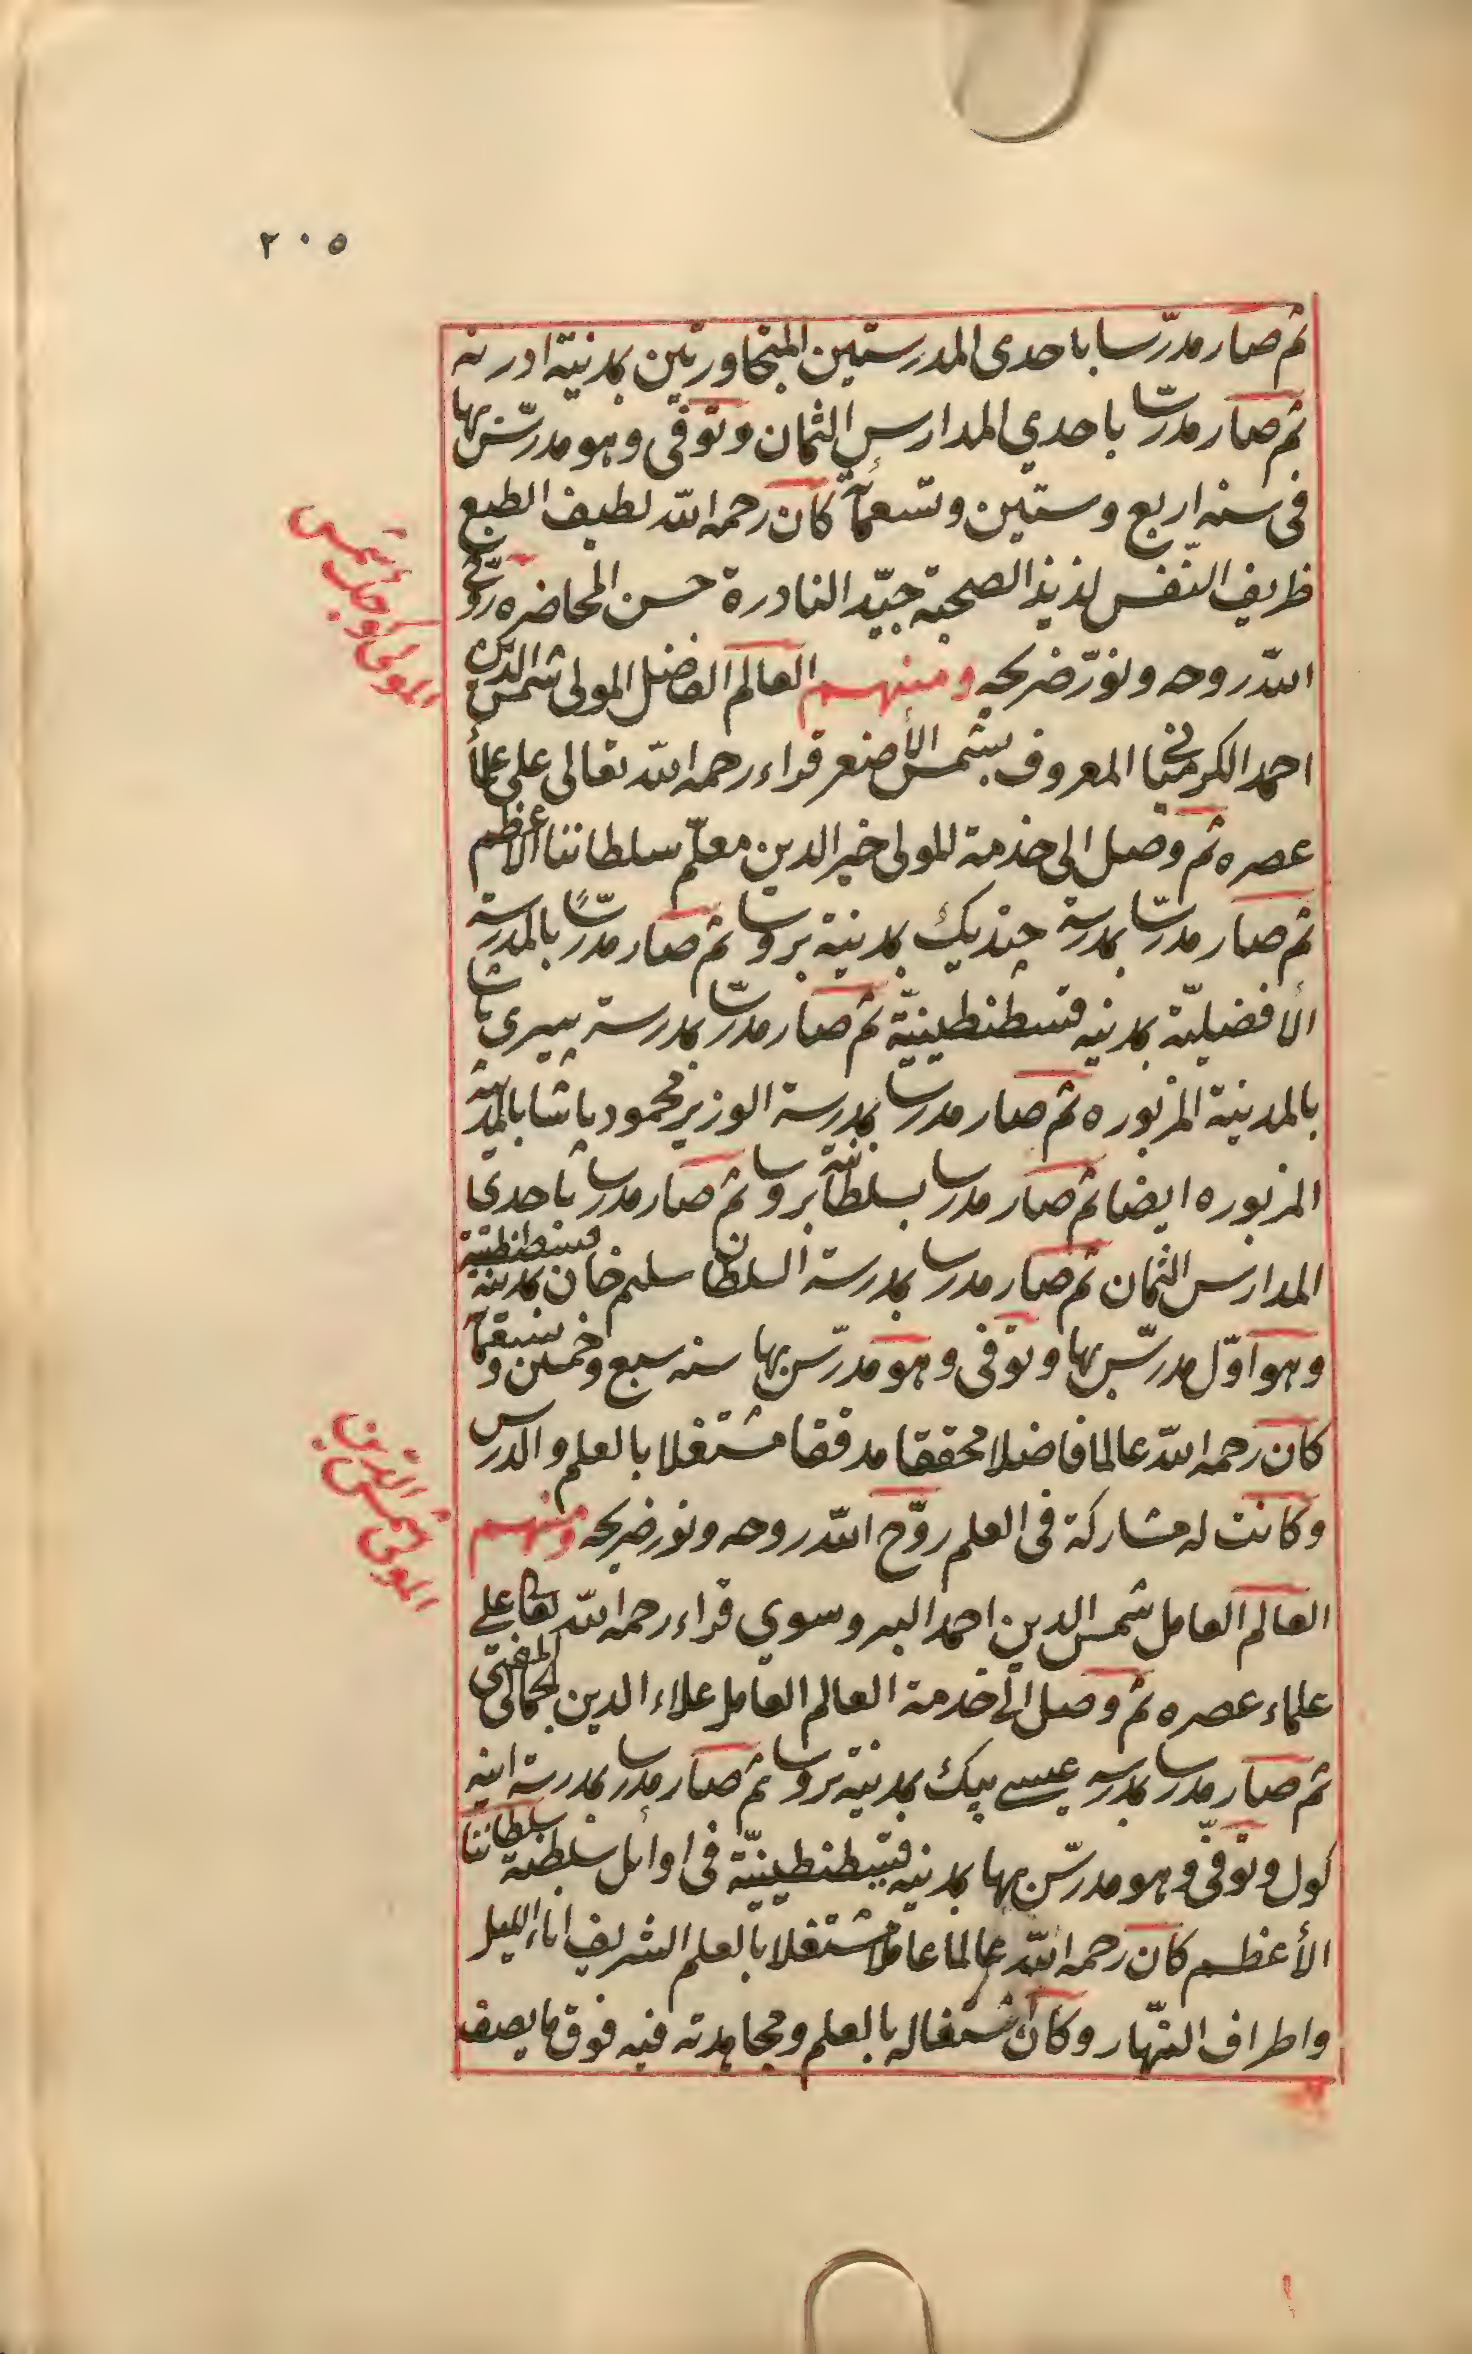 ٢٠٥
ثم صار مدرّسا باحدى المدرستين المتجاورتين بمدينة ادرنه
ثم صار مدرّسا باحدي المدارس الثمان وتوفى وهو مدرّس بها
فى سنه اربع وستين وتسعمائة كان رحمه الله لطيف الطبع
ظريف النفس لذيذ الصحبة جيّد النادرة حسن المحاضره روّح
الله روحه ونوّر ضريحه ومنهم العالم الفاضل المولى شمس الدين
احمد الكرميانى المعروف بشمس الأصغر قراء رحمه الله تعالى على علماء
عصره ثم وصل الى خدمة المولى خير الدين معلّم سلطاننا الأعظم
ثم صار مدرّسا بمدرسة جنديك بمدينة بروسا ثم صار مدرّسًا بالمدرسة
الأفضليّة بمدينه قسطنطينيّة ثم صار مدرّسا بمدرسة پيرى پاشا
بالمدينة المزبوره ثم صار مدرسا بمدرسة الوزير محمود پاشا بالمدينة
المزبوره ايضا ثم صار مدرسا بسلطانية بروسا ثم صار مدرسا باحدى
المدارس الثمان ثم صار مدرسا بمدرسة السلطان سليم خان بمدينة قسطنطينية
وهو اوّل مدرّس بها وتوفى وهو مدرّس بها سنه سبع وخمسين وتسعمائة
كان رحمه الله عالما فاضلا محققا مدققا مشتغلا بالعلم والدرس
وكانت له مشاركة فى العلم روّح الله روحه ونور ضريحه ومنهم
العالم العامل شمس الدين احمد البروسوي قراء رحمه الله تعالى على
علماء عصره ثم وصل الى خدمة العالم العامل علاء الدين الجمالى المفتى
ثم صار مدرسا بمدرسه عيسى بيك بمدينة بروسا ثم صار مدرسا بمدرسة اينه
كول وتوفّى وهو مدرّس بها بمدينه قسطنطينيّة فى اوائل سلطنة سلطاننا
الأعظم كان رحمه الله عالما عاملا مشتغلا بالعلم الشريف اناء الليل
واطراف النهار وكان اشتغاله بالعلم ومجاهدته فيه فوق ما يصف
المولى كوجك شمس
المولى شمس الدين